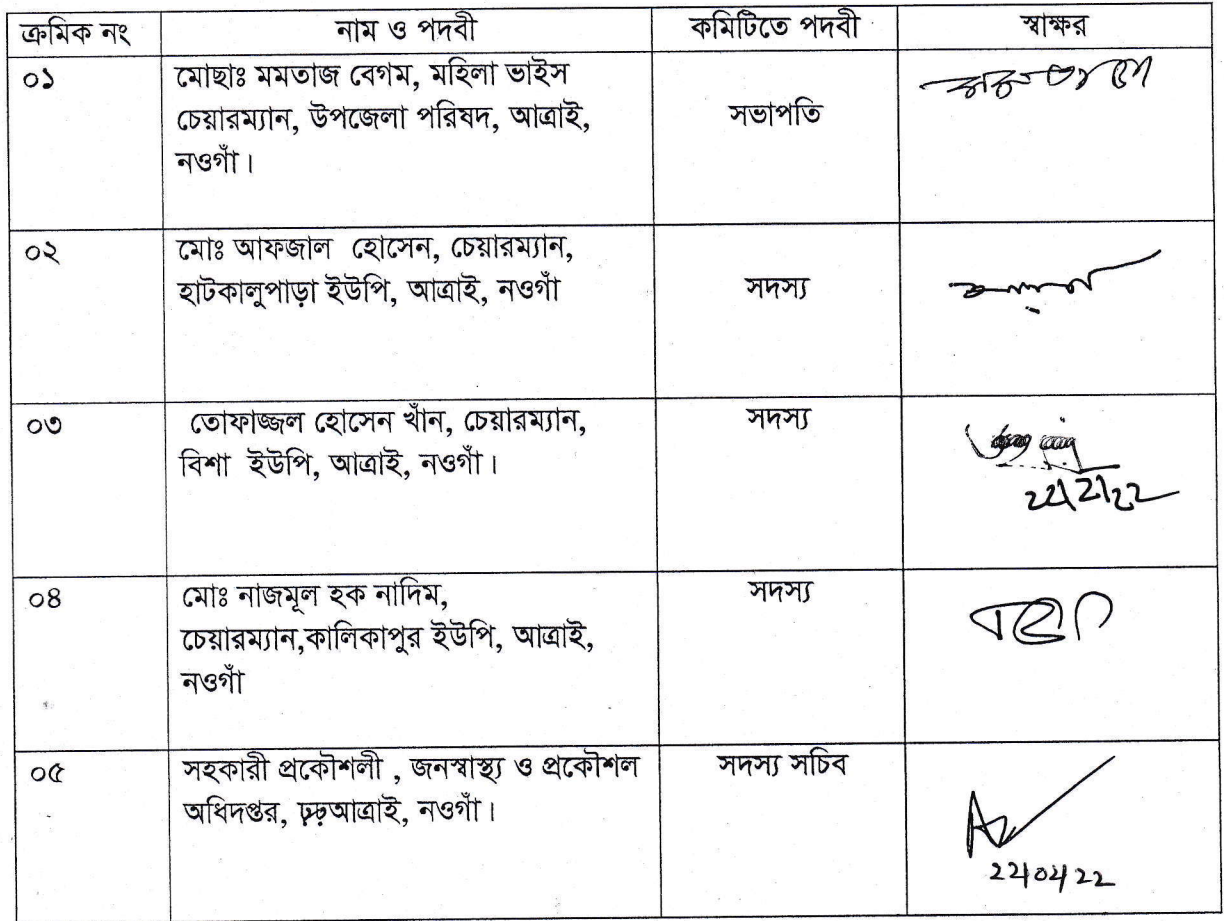 ক্রমিক নং নাম ও পদবী কমিটিতে পদবী স্বাক্ষর
০১ মোছাঃ মমতাজ বেগম, মহিলা ভাইস
চেয়ারম্যান, উপজেলা পরিষদ, আত্রাই, সভাপতি
নওগাঁ।
০২ মোঃ আফজাল হোসেন, চেয়ারম্যান,
হাটকালুপাড়া ইউপি, আত্রাই, নওগাঁ সদস্য
০৩ তোফাজ্জল হোসেন খাঁন, চেয়ারম্যান, সদস্য
বিশা ইউপি, আত্রাই, নওগাঁ।
22/2/22
০৪ মোঃ নাজমূল হক নাদিম, সদস্য
চেয়ারম্যান,কালিকাপুর ইউপি, আত্রাই,
নওগাঁ
০৫ সহকারী প্রকৌশলী , জনস্বাস্থ্য ও প্রকৌশল সদস্য সচিব
অধিদপ্তর, ঢ়ঢ়আত্রাই, নওগাঁ।
22/02/22